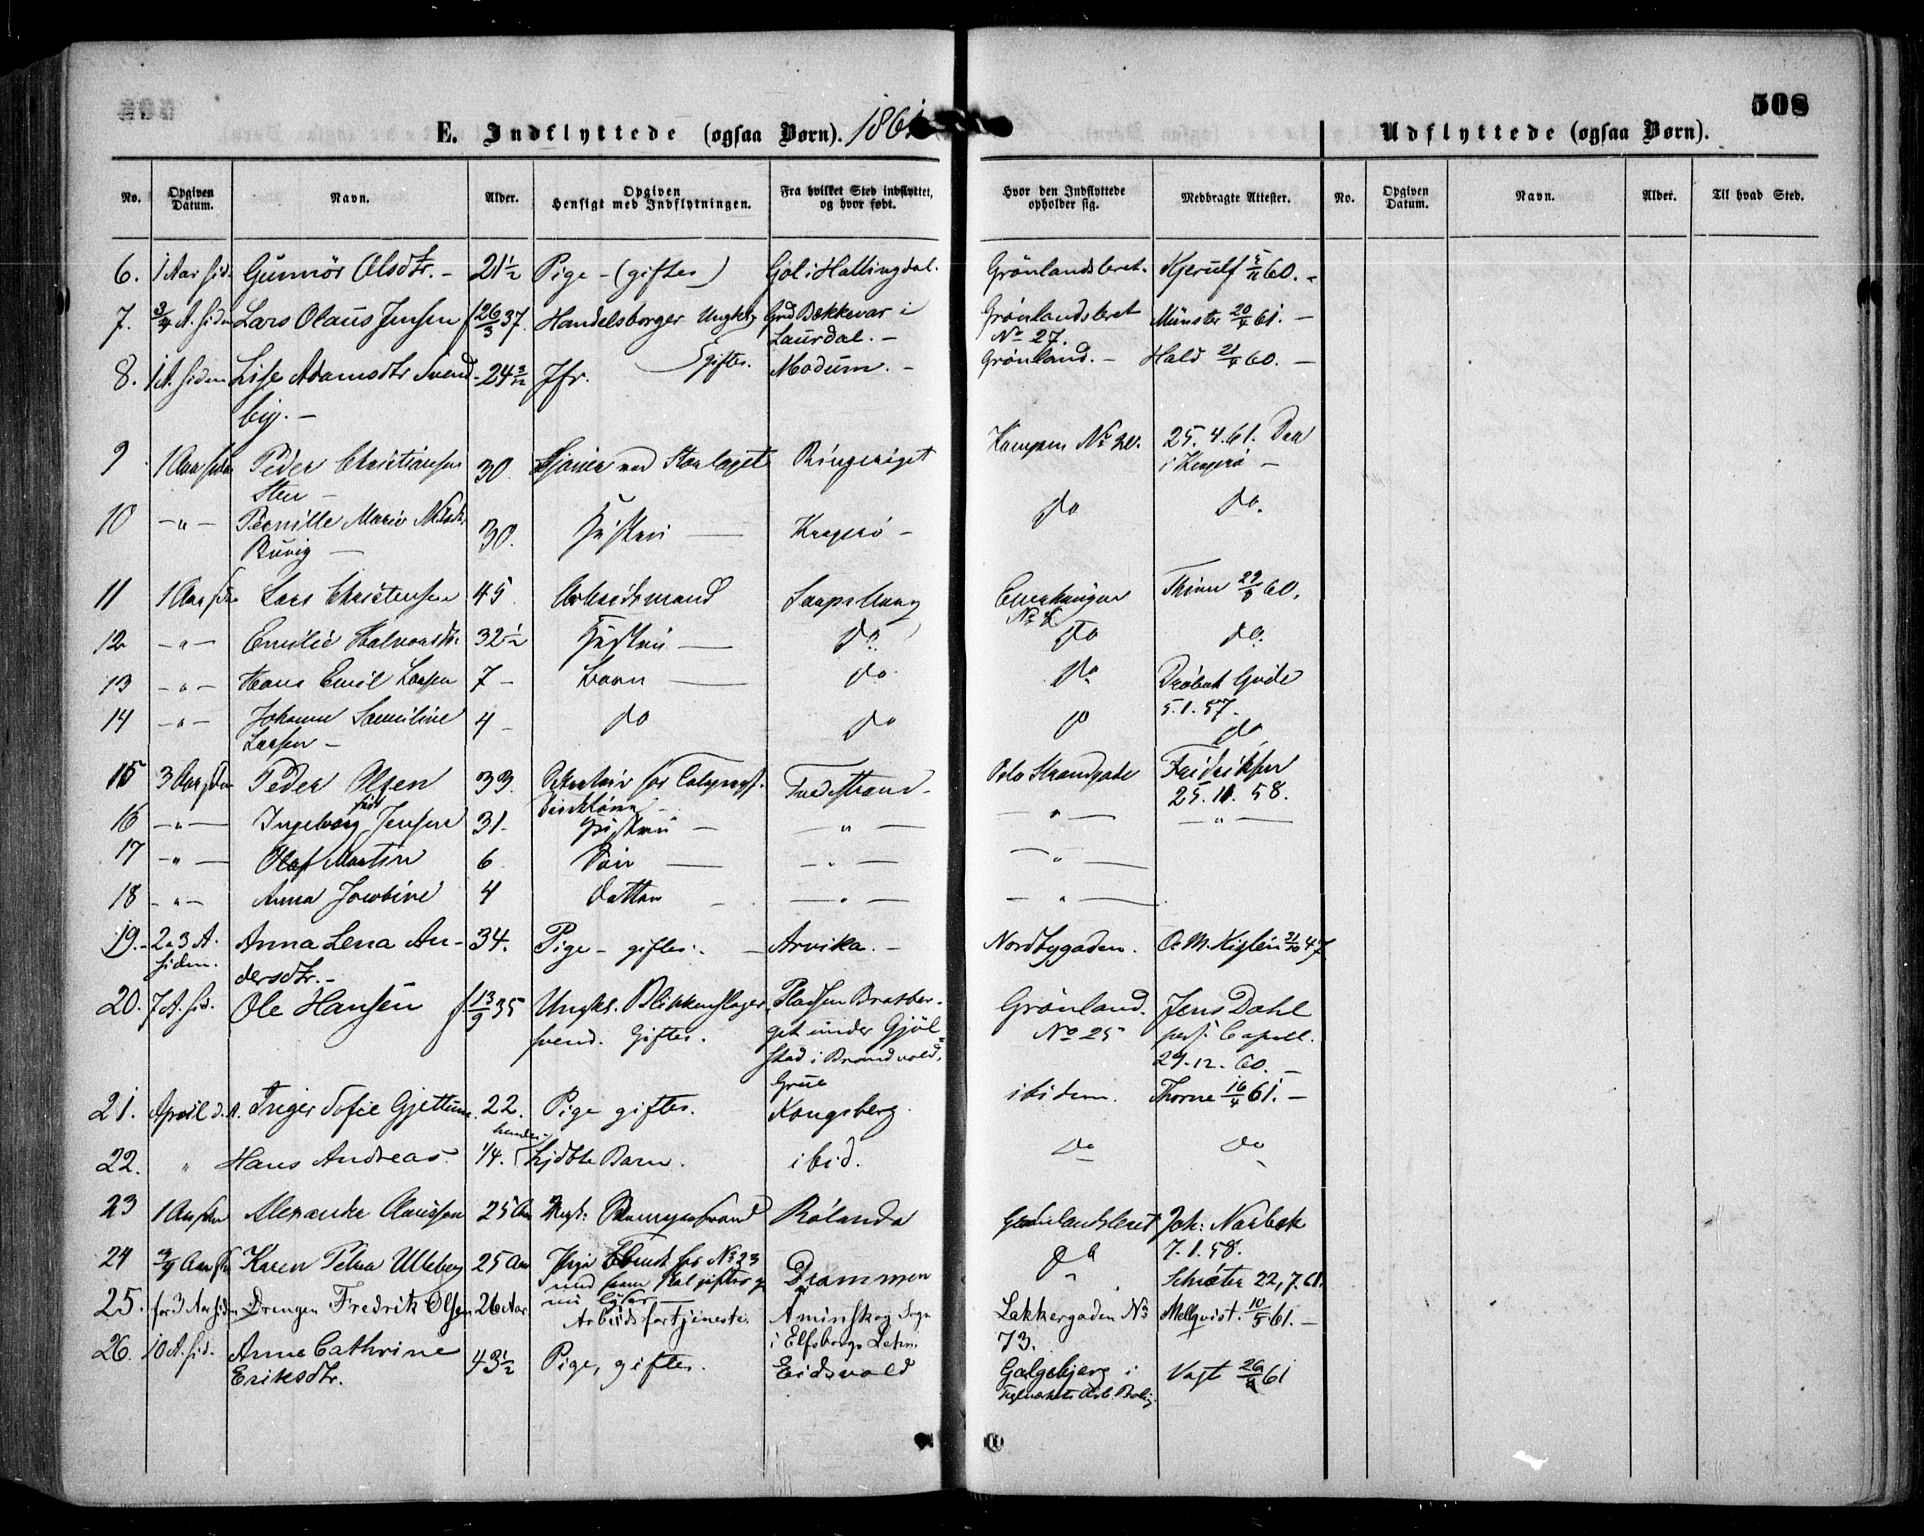 508
E. Indflyttede (ogsaa Børn). 1861
Udflyttede (ogsaa Børn).
No.
Opgiven Datum.
Navn.
Alder.
Opgiven Hensigt med Indflytningen.
Fra hvilket Sted indflyttet, og hvor født.
Hvor den Indflyttede opholder sig.
Medbragte Attester.
No.
Opgiven Datum.
Navn.
Alder.
Til hvad Sted.
6. 1 Aar sid. Gunnór Olsdtr. - 21½ Pige - (giftes) Gol i Hallingdal. Grönlandsleret. Kjerulf 60. -
7. 3/4 A. siden Lars Olaus Jensen f 26/3 37. Handelsborger Ungk. Grd Bækkevar i Laurdal. - Grönlandsleret No 27. Münster 20/4 61. -
8. 1 A. siden Lise Adamsdtr Svend- 24 Jfr. giftes. Modum. - Grönland. - Hald 21/4 60. -
by. -
9 1 Aar siden Peder Christiansen Sten - 30. Ringeriget Kampen No 25.4.61. Daa i Kragerø -
10 - " - Pernille Marie Nilsdtr Buvig - 30. Hustru - Kragerø - do do.
11 1 Aar siden Lars Christensen 45 Arbeidsmand Sarpsborg Enerhaugen No Thinn 29/ 60.
12 - " - Emilie Halvorsdtr. 32½ Hustru - do do do.
13 - " - Hans Emil Larsen 7 - Barn - do do Drøbak Gude 5.1.57.
14 - " - Johanne Samiline Larsen - 4 - do do do do
15 3 Aar siden Peder Olsen 33. for Tvedestrand - Oslo Strandgade Fredriksen 25.11.58.
16 - " - Ingeborg född Jensen 31. Hustru - - " - - " - - " -
17 - " - Olaf Martin 6 Søn - - " - - " -
18 - " - Anna Jacobine 4 Datter - - " - - " -
19. - 2 a 3 A. siden. Anna Lena An- 34. Pige - giftes. - Arvika. - Nordbygaden. O. M. Kiglin 31/10 47
dersdtr. -
20. 7 A. sid. Ole Hansen f. 13/9 35 Ungk. Blikkenslager- Pladsen Bratber- Grönland. Jens Dahl
svend. Giftes. get under Gjøl- No 25 pers. Capell.
stad i Brandvold, 29-12-60. -
Grue
21. April d. A. Inger Sofie Gjettum. 22. Pige giftes. Kongsberg ibidem. Thorne 16/4 61. -
22. " Hans Andreas. 1/4. hendes ægte Barn. ibid. do do
23 1 Aar siden Alexander Olausson 25 Aar Ungk. Rölanda Grönlandsleret Joh: Narbek 7.1.58.
24 3/4 Aar sid Karen Petra Ulleberg 25 Aar Pige for No 23 med hvem skal giftes Drammen do Schröter 22, 7.61.
25. for 3 Aar siden Drengen Fredrik Olsen 26 Aar. Arbeidsfortjeneste. Åminskog Sogn i Elfsborgs Lehn. Lakkergaden No 73. Mellqvist. 10/5 61. -
26. 10 A. sid. Anne Cathrine Eriksdtr. 43½ Pige, giftes. Eidsvold Galgebjerg i Vogt 26/ 61